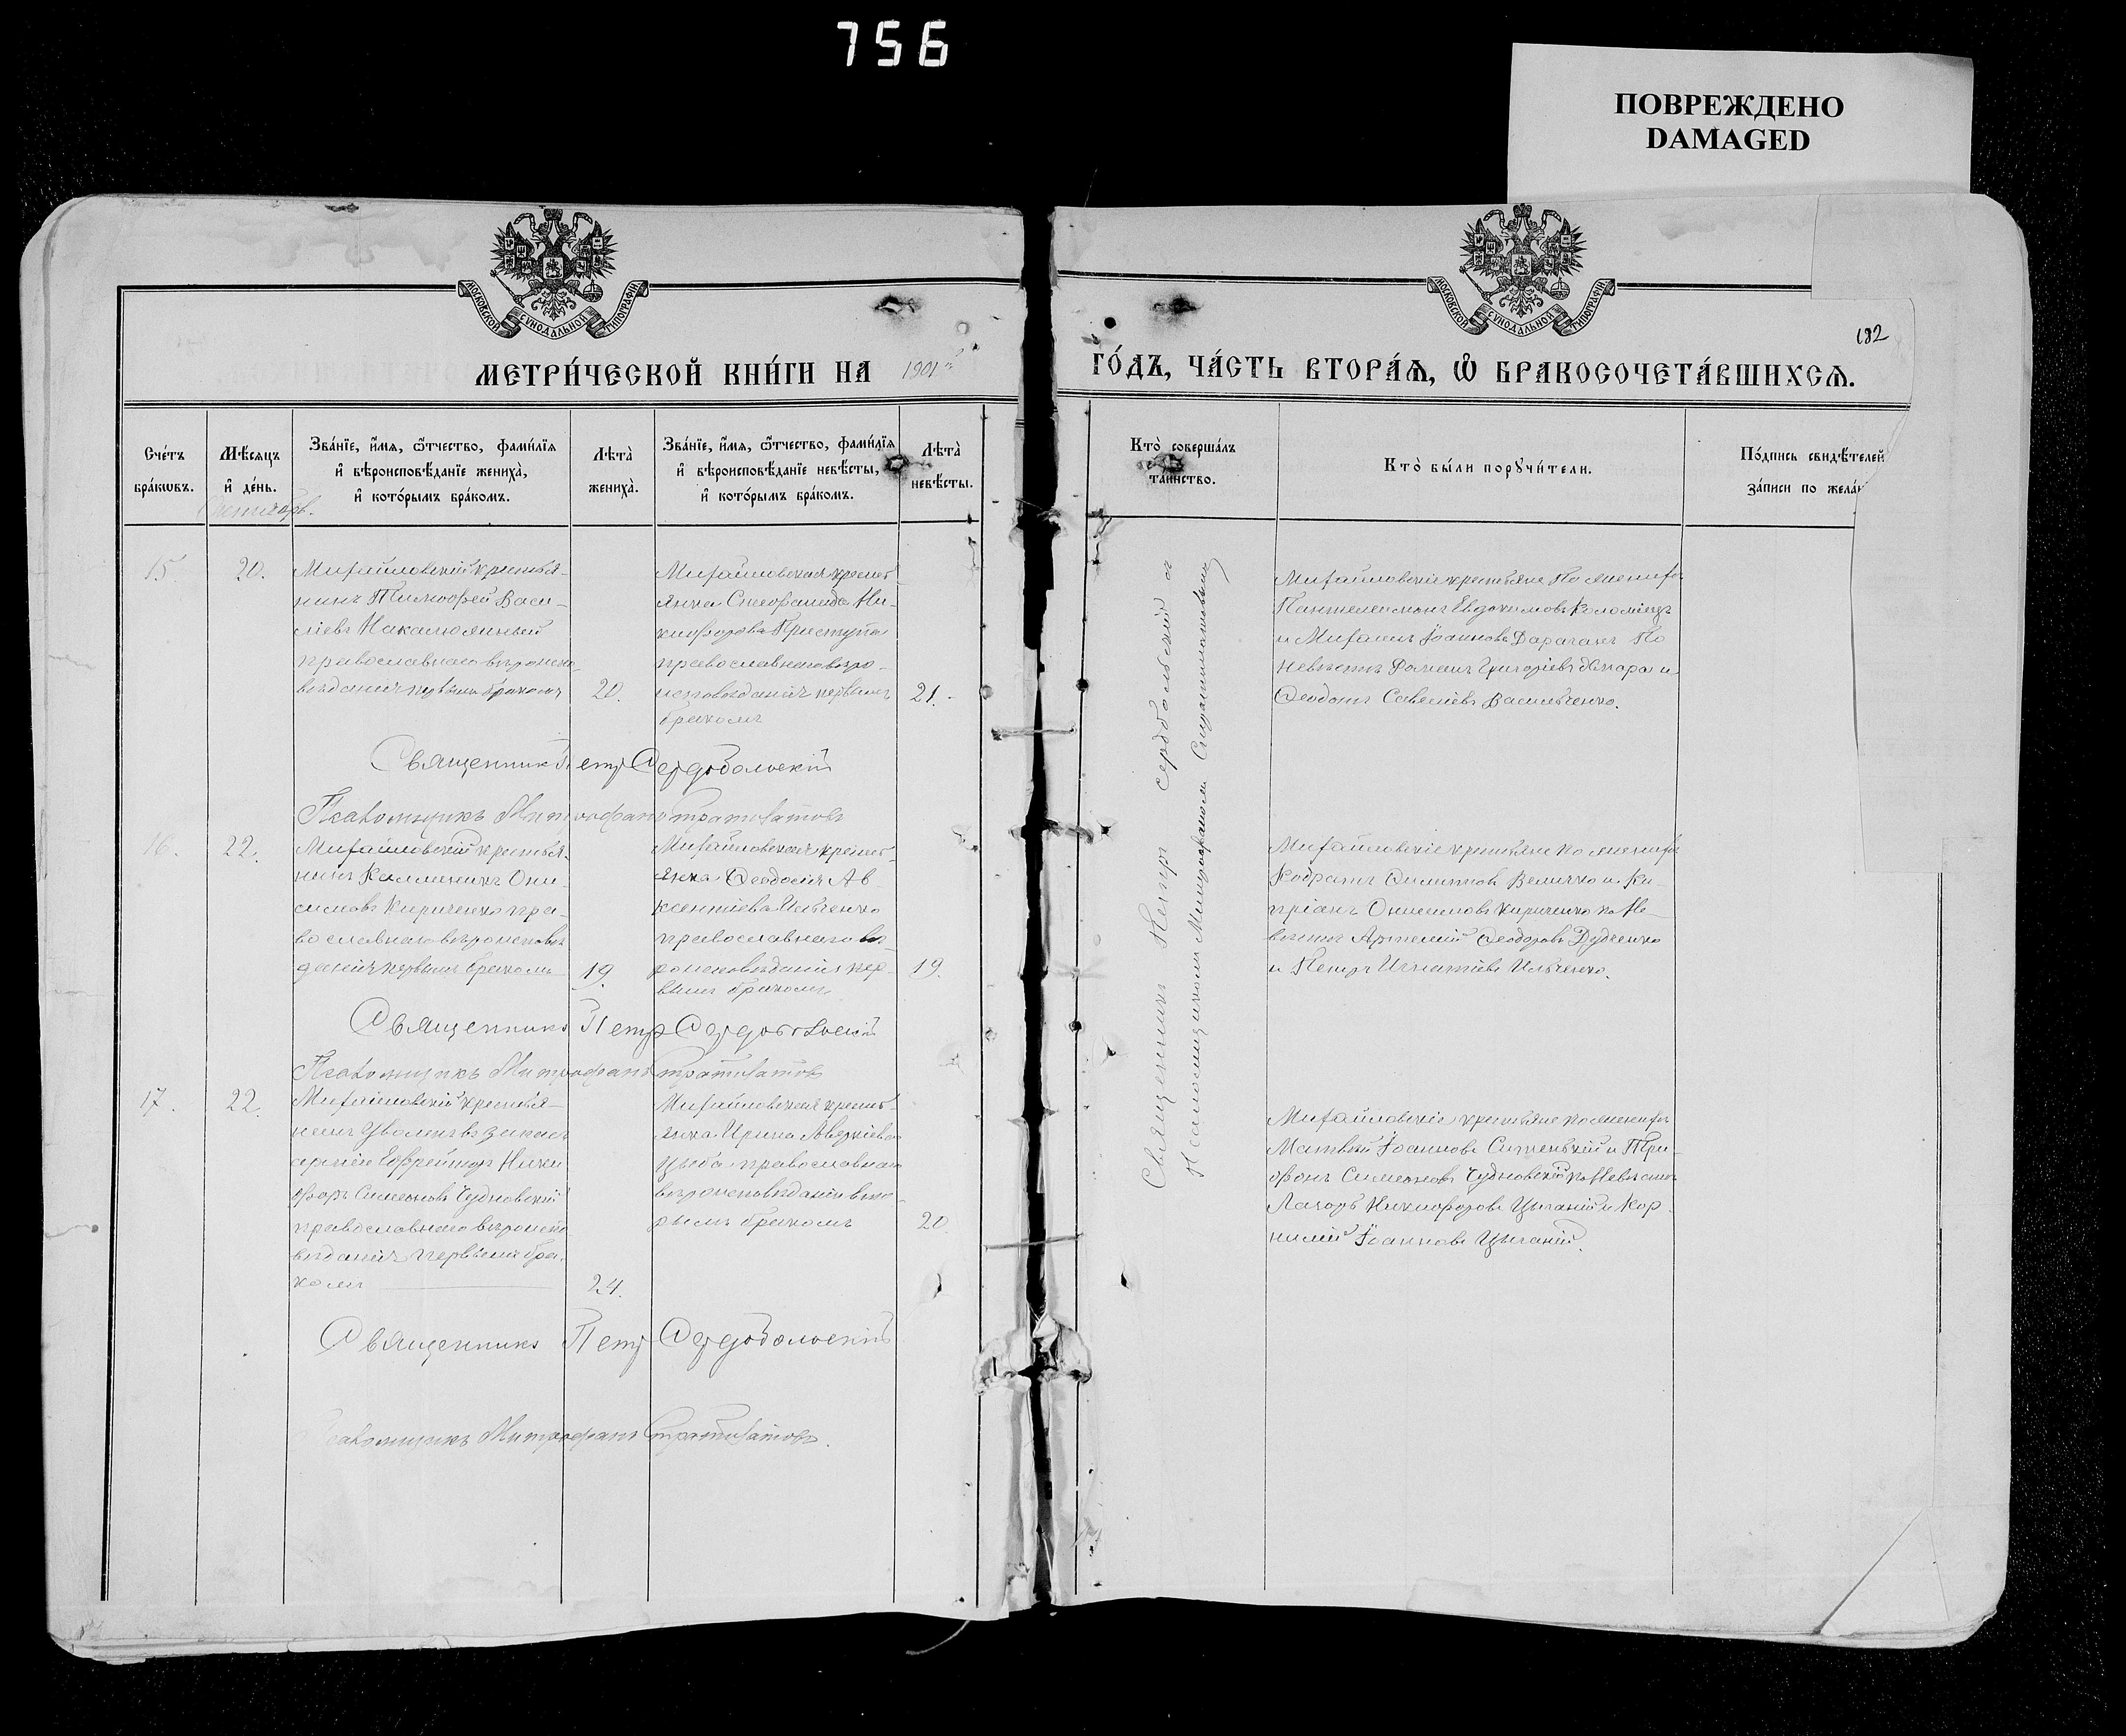 756
ПОВРЕЖДЕНО
DAMAGED
МОСКОВСКОЙ СУНОДАЛЬНОЙ ТИПОГРАФІИ
МОСКОВСКОЙ СУНОДАЛЬНОЙ ТИПОГРАФІИ
182
МЕТРИ́ЧЕСКОЙ КНИ́ГИ НА 1901й ГО́ДЪ, ЧА́СТЬ ВТОРА́Ѧ, Ѽ БРАКОСОЧЕТА́ВШИХСѦ.
Сче́тъ
бра́кѡвъ.
Мѣ́сѧцъ
и҆ де́нь.
Зва́нїе, и҆́мѧ, ѻ҆́тчество, фами́лїѧ
и҆ вѣроисповѣ́данїе жениха̀,
и҆ кото́рымъ бра́комъ.
Лѣта̀
жениха̀.
Зва́нїе, и҆́мѧ, ѻ҆́тчество, фами́лїѧ
и҆ вѣроисповѣ́данїе невѣ́сты,
и҆ кото́рымъ бра́комъ.
Лѣта̀
невѣ́сты.
Кто̀ соверша́лъ
та́инство.
Кто̀ бы́ли порꙋчи́тели.
По́дпись свидѣ́телей
за́писи по жела́
Сентябрь.
15.
20.
Михайловскій крестья-
нинъ Тимофей Васи-
ліевъ Накалюжный
православнаго вѣроиспо-
вѣданія первымъ бракомъ
20.
Михайловская крест-
янка Стефанида Ни-
кифорова Приступа
православнаго вѣро-
исповѣданія первымъ
бракомъ
21.
Михайловскіе крестьяне По женихѣ
Пантелеимонъ Евдокимовъ Коломіецъ
и Михаилъ Іоанновъ Дараганъ По
невѣстѣ Романъ Григоріевъ и
Ѳеодотъ Савеліевъ Васильченко.
Священникъ Петръ Сердобольскій
Псаломщикъ Митрофанъ Стратилатовъ
16.
22.
Михайловскій крестья-
нинъ Каллиникъ Они-
симовъ Кириченко пра-
вославнаго вѣроисповѣ
данія первымъ бракомъ
19.
Михайловская крест-
янка Ѳеодосія Ав-
ксентіева Ильченко
православнаго вѣ-
роисповѣданія пер-
вымъ бракомъ
19.
Михайловскіе крестьяне по женихѣ
Кодратъ Филиповъ Величко и Ки-
пріанъ Онисимовъ Кириченко по Не-
вѣстѣ Артемій Ѳеодоровъ Дудченко
и Петръ Игнатіевъ Ильченко.
Священникъ Петръ Сердобольскій
Псаломщикъ Митрофанъ Стратилатовъ
17.
22.
Михайловскій крестья-
нинъ Уволенъ въ запасъ
арміи Ефрейторъ Ники
форъ Симеоновъ Чудновскій
православнаго вѣроиспо
вѣданія первымъ бра-
комъ
24.
Михайловская крест-
янка Ирина Авскіева
Цыба православнаго
вѣроисповѣданія вто-
рымъ бракомъ
20
Михайловскіе крестьяне по женихѣ
Матвей Іоанновъ Ситенькій и Три-
фонъ Симеоновъ Чудновскій по Невѣстѣ
Лазарь Никифоровъ Цыганій и Кор-
нилій Іоанновъ Цыганій.
Священникъ Петръ Сердобольскій
Псаломщикъ Митрофанъ Стратилатовъ.
Священникъ Петръ Сердобольскій съ
Псаломщикомъ Митрофаномъ Стратилатовымъ